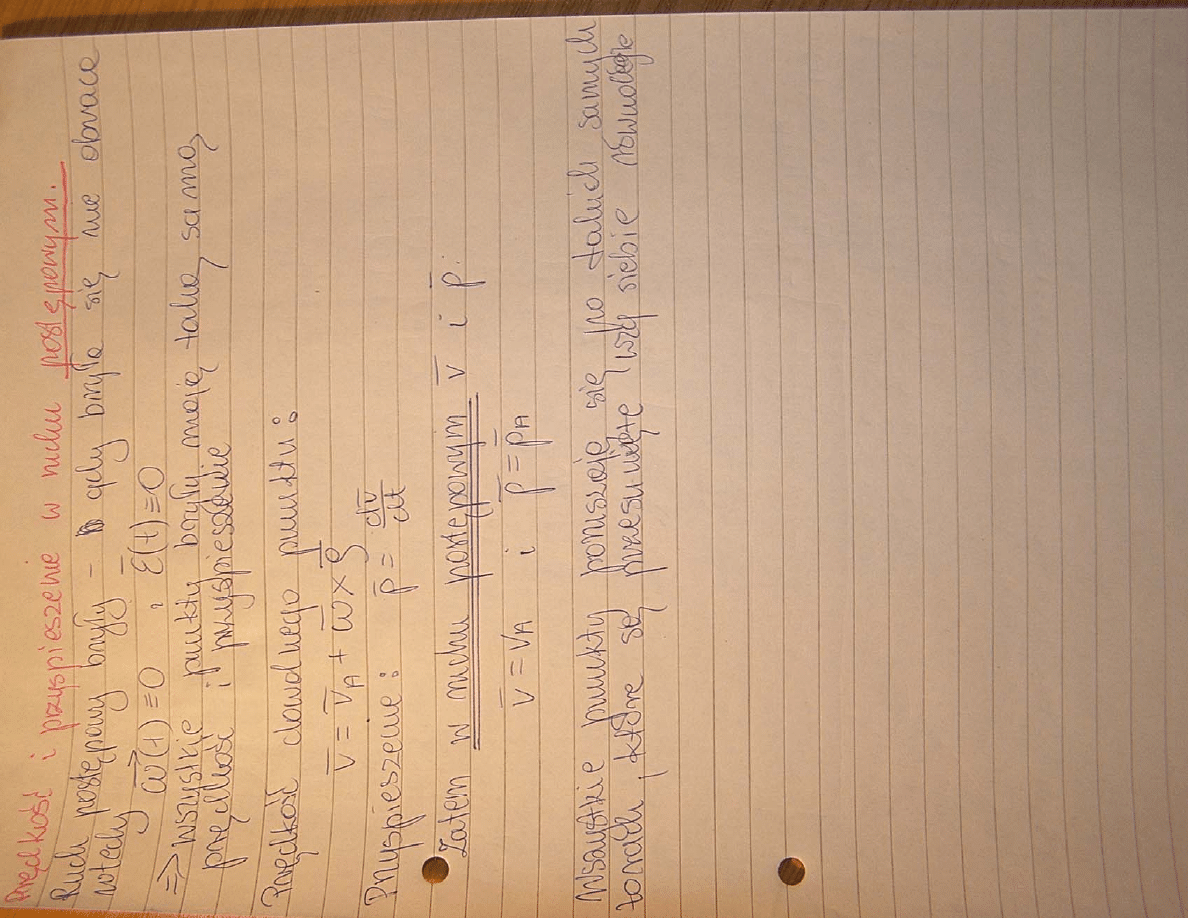 Prędkość i przyspieszenie w ruchu postępowym.
Ruch postępowy bryły - gdy bryła się nie obraca
wtedy
ω̄(t) ≡ 0 , ε̄(t) ≡ 0
=> wszystkie punkty bryły mają taką samą
prędkość i przyspieszenie
Prędkość dowolnego punktu:
v̄ = v̄A + ω̄ × ρ̄
Przyspieszenie: p̄ = dv̄/dt
Zatem w ruchu postępowym v̄ i p̄:
v̄ = v̄A i p̄ = p̄A
Wszystkie punkty poruszają się po takich samych
torach, które są przesunięte wzg siebie równolegle